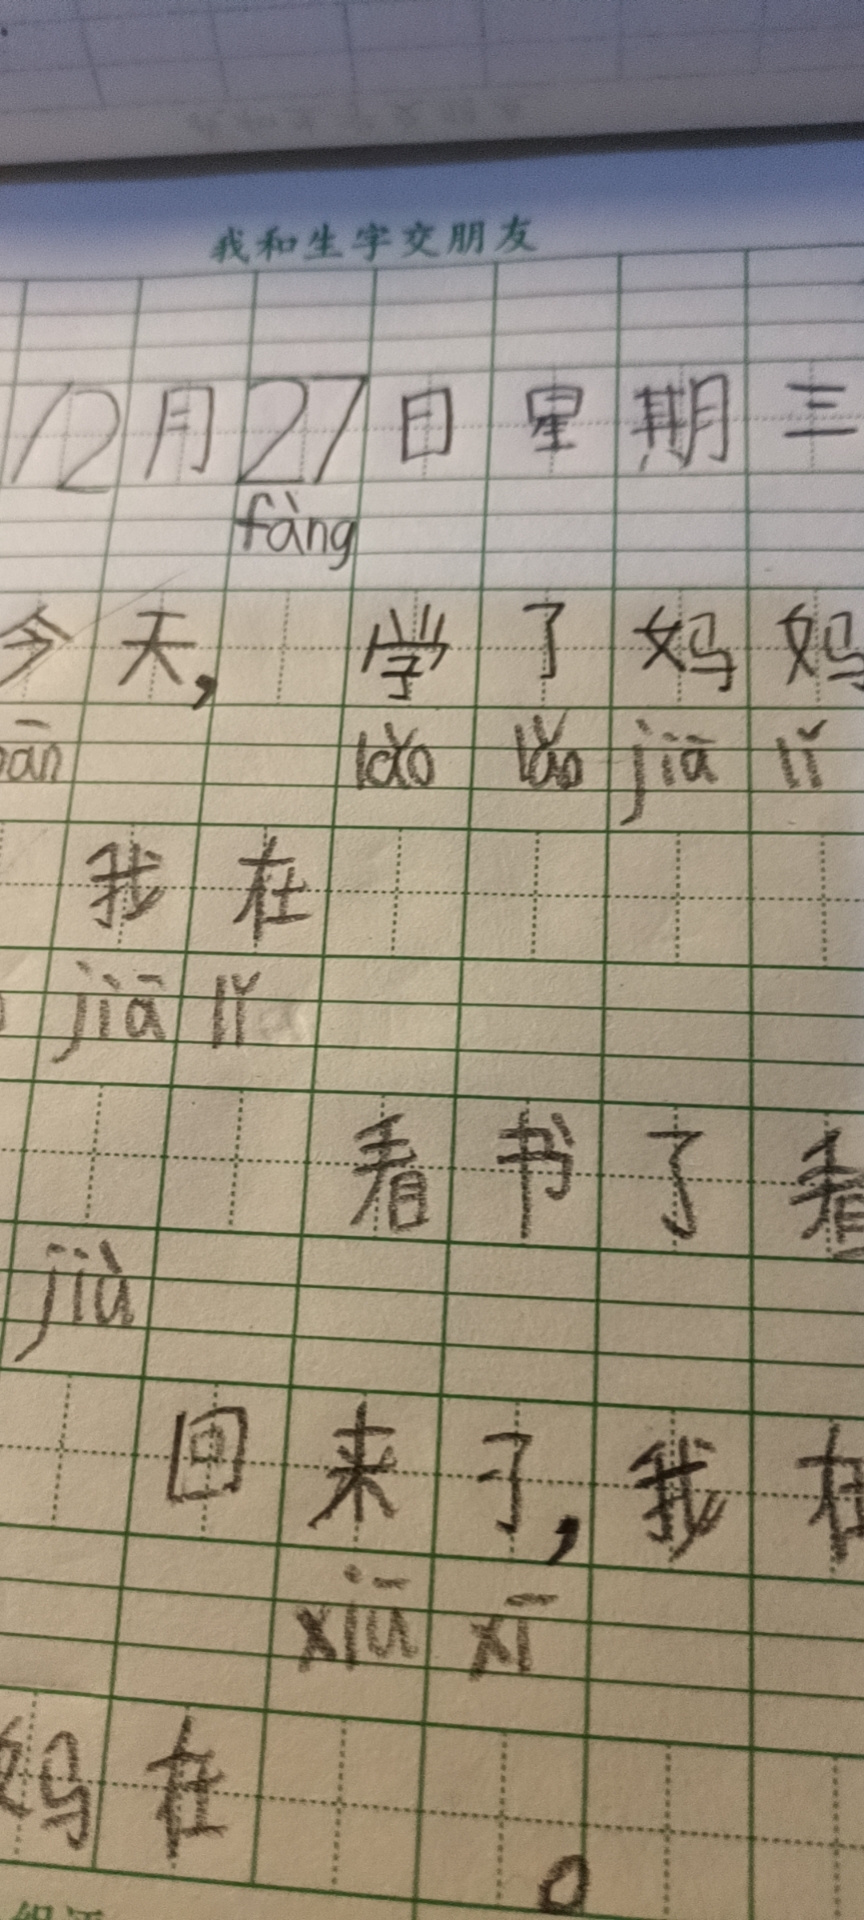 我和生字交朋友
12月27日星期三
fàng
今天, 学了妈妈
lǎo lǎo jiā lǐ
我在
jiā lǐ
看书了看
jiù
回来了,我在
xiū xī
妈在 。